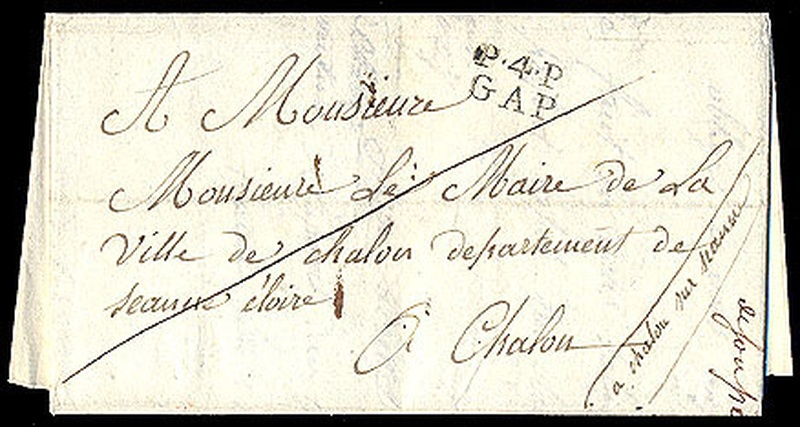 P.4.P
GAP
A Monsieure
Monsieure Le Maire de La
Ville de chalon departement de
seaune éloire
A Chalon
a chalon sur seaune